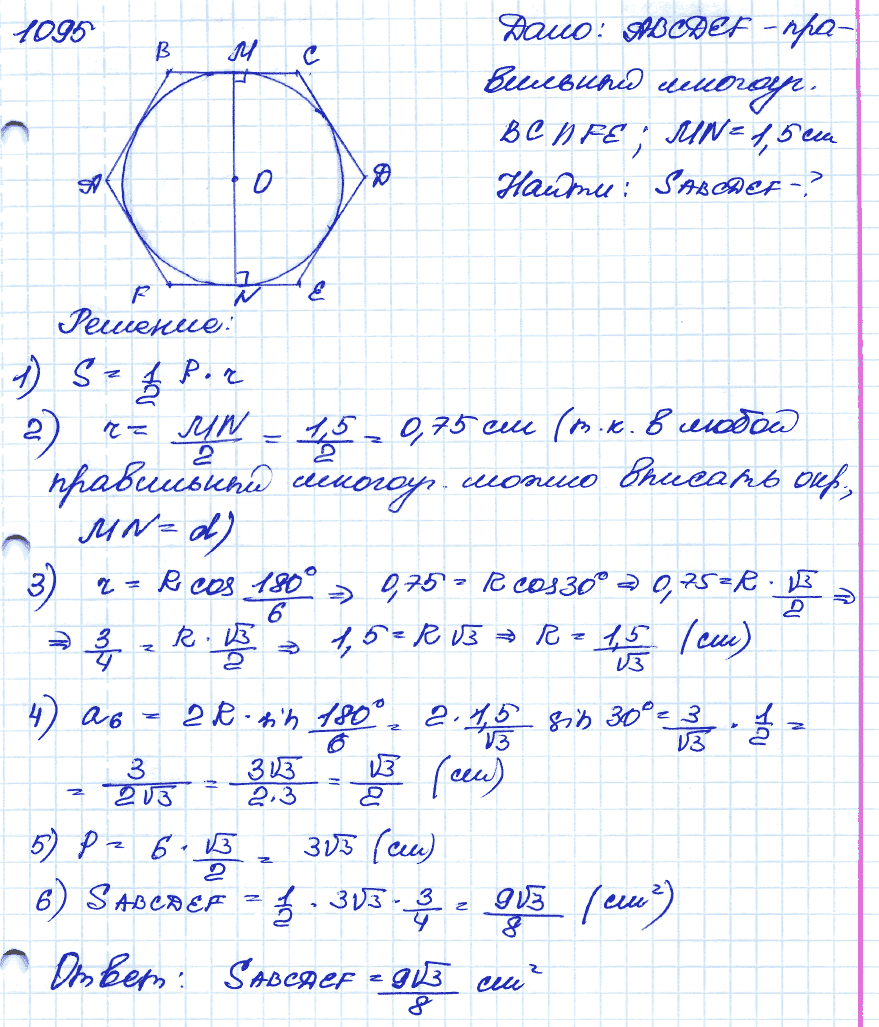 1095
B M C
A O D
F N E
Дано: ABCDEF - пра-
вильный многоуг.
BC ∩ FE; MN = 1,5 см
Найти: S ABCDEF - ?
Решение:
1) S = 1/2 P · r
2) r = MN/2 = 1,5/2 = 0,75 см (т.к. в любой
правильный многоуг. можно вписать окр.,
MN = d)
3) r = R cos 180°/6 ⇒ 0,75 = R cos 30° ⇒ 0,75 = R · √3/2 ⇒
⇒ 3/4 = R · √3/2 ⇒ 1,5 = R √3 ⇒ R = 1,5/√3 (см)
4) a₆ = 2R · sin 180°/6 = 2 · 1,5/√3 sin 30° = 3/√3 · 1/2 =
= 3/2√3 = 3√3/2·3 = √3/2 (см)
5) P = 6 · √3/2 = 3√3 (см)
6) S ABCDEF = 1/2 · 3√3 · 3/4 = 9√3/8 (см²)
Ответ: S ABCDEF = 9√3/8 см²